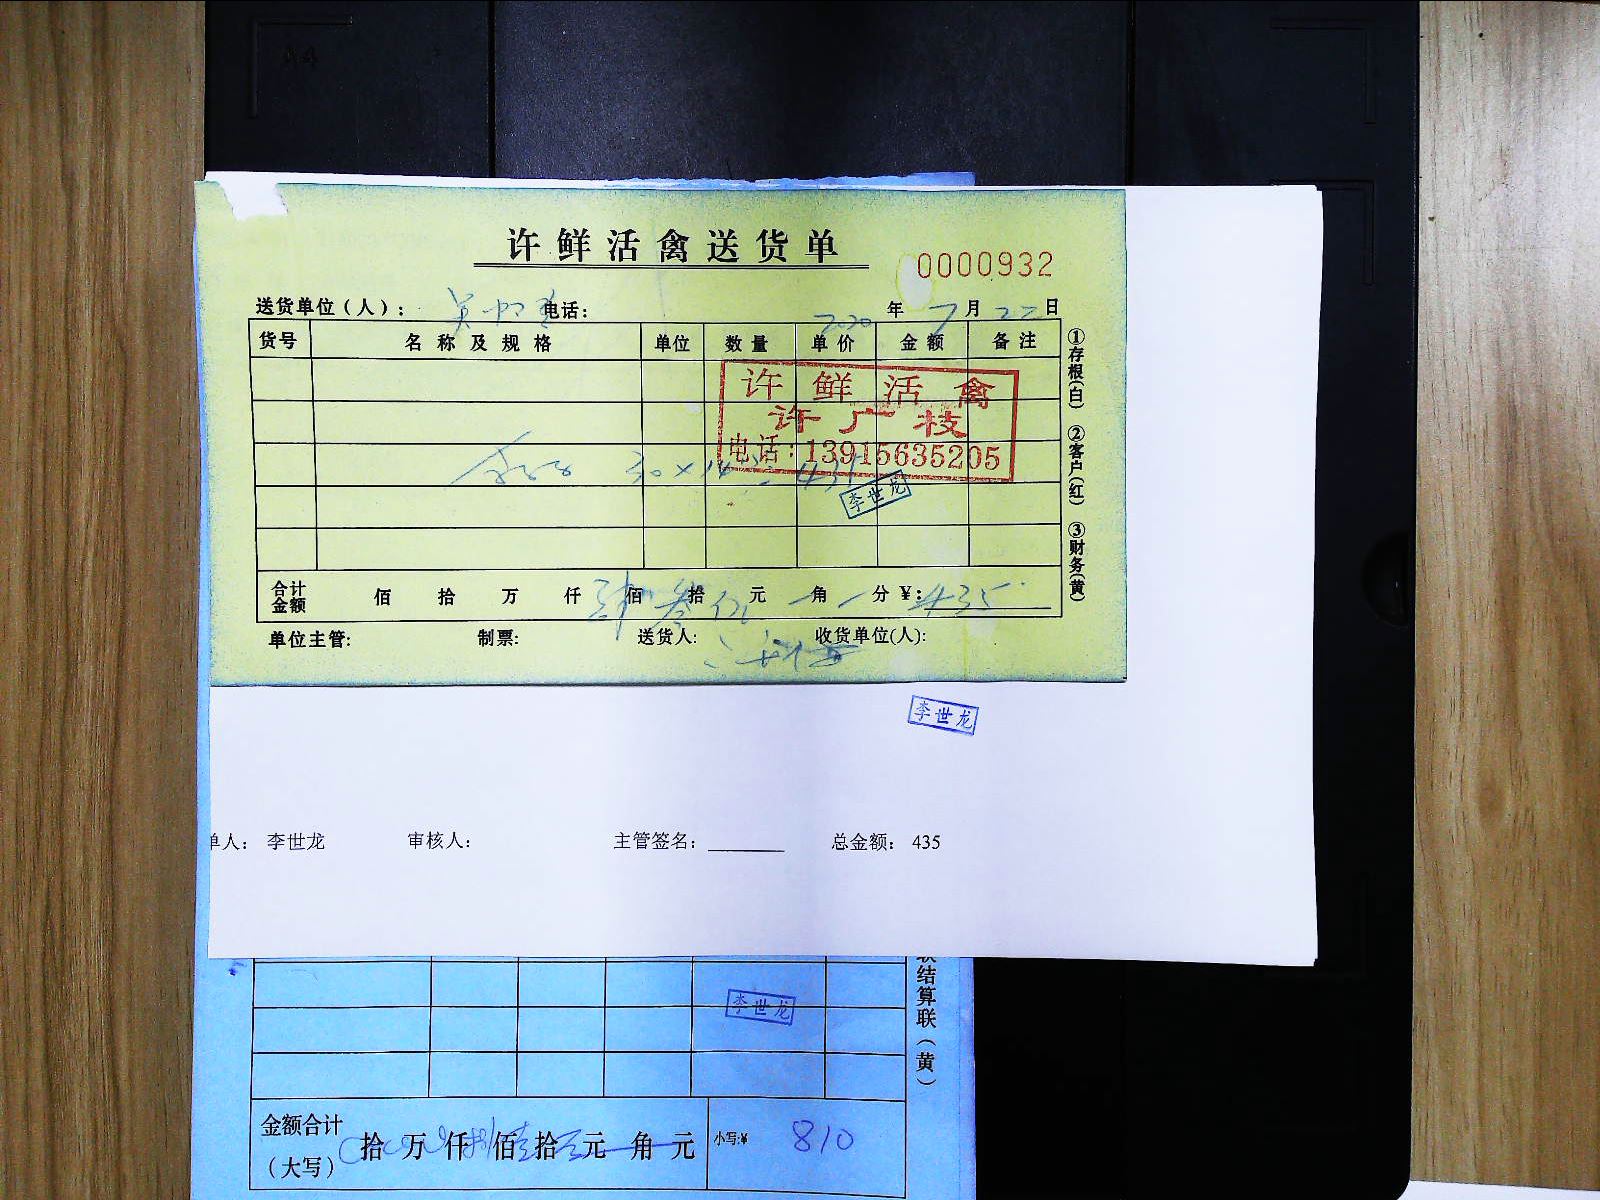 A4
许鲜活禽送货单
0000932
送货单位（人）： 电话： 2020 年 7 月 22 日
货号 名称及规格 单位 数量 单价 金额 备注
许鲜活禽
许广枝
电话：13915635205
30×14.5=435
李世龙
合计金额 佰 拾 万 仟 肆 佰 叁 拾 伍 元 角 分 ¥：435
单位主管： 制票： 送货人： 收货单位(人)：
①存根(白) ②客户(红) ③财务(黄)
李世龙
单人： 李世龙 审核人： 主管签名： 总金额： 435
李世龙
联结算联（黄）
金额合计（大写） 拾 万 仟 捌 佰 壹 拾 元 角 元 小写:¥ 810